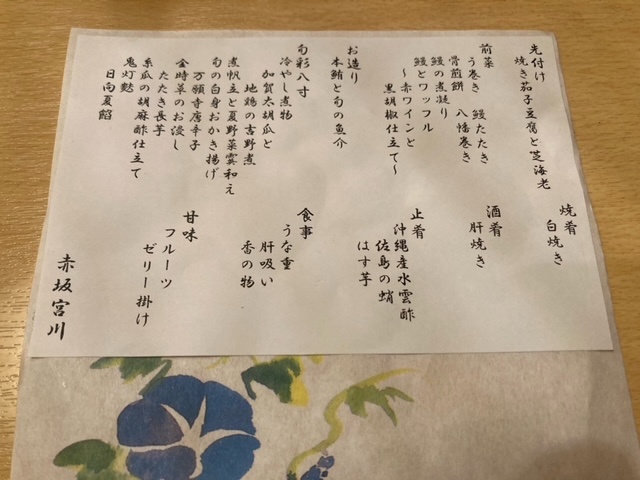 先付け
焼き茄子豆腐と芝海老
前菜
う巻き　鰻たたき
骨煎餅　八幡巻き
鰻の煮凝り
鰻とワッフル
～赤ワインと
黒胡椒仕立て～
お造り
本鮪と旬の魚介
旬彩八寸
冷やし煮物
加賀太胡瓜と
地鶏の吉野煮
煮帆立と夏野菜霙和え
旬の白身おかき揚げ
万願寺唐辛子
金時草のお浸し
たたき長芋
糸瓜の胡麻酢仕立て
鬼灯麩
日向夏餡
焼肴
白焼き
酒肴
肝焼き
止肴
沖縄産水雲酢
佐島の蛸
はす芋
食事
うな重
肝吸い
香の物
甘味
フルーツ
ゼリー掛け
赤坂宮川